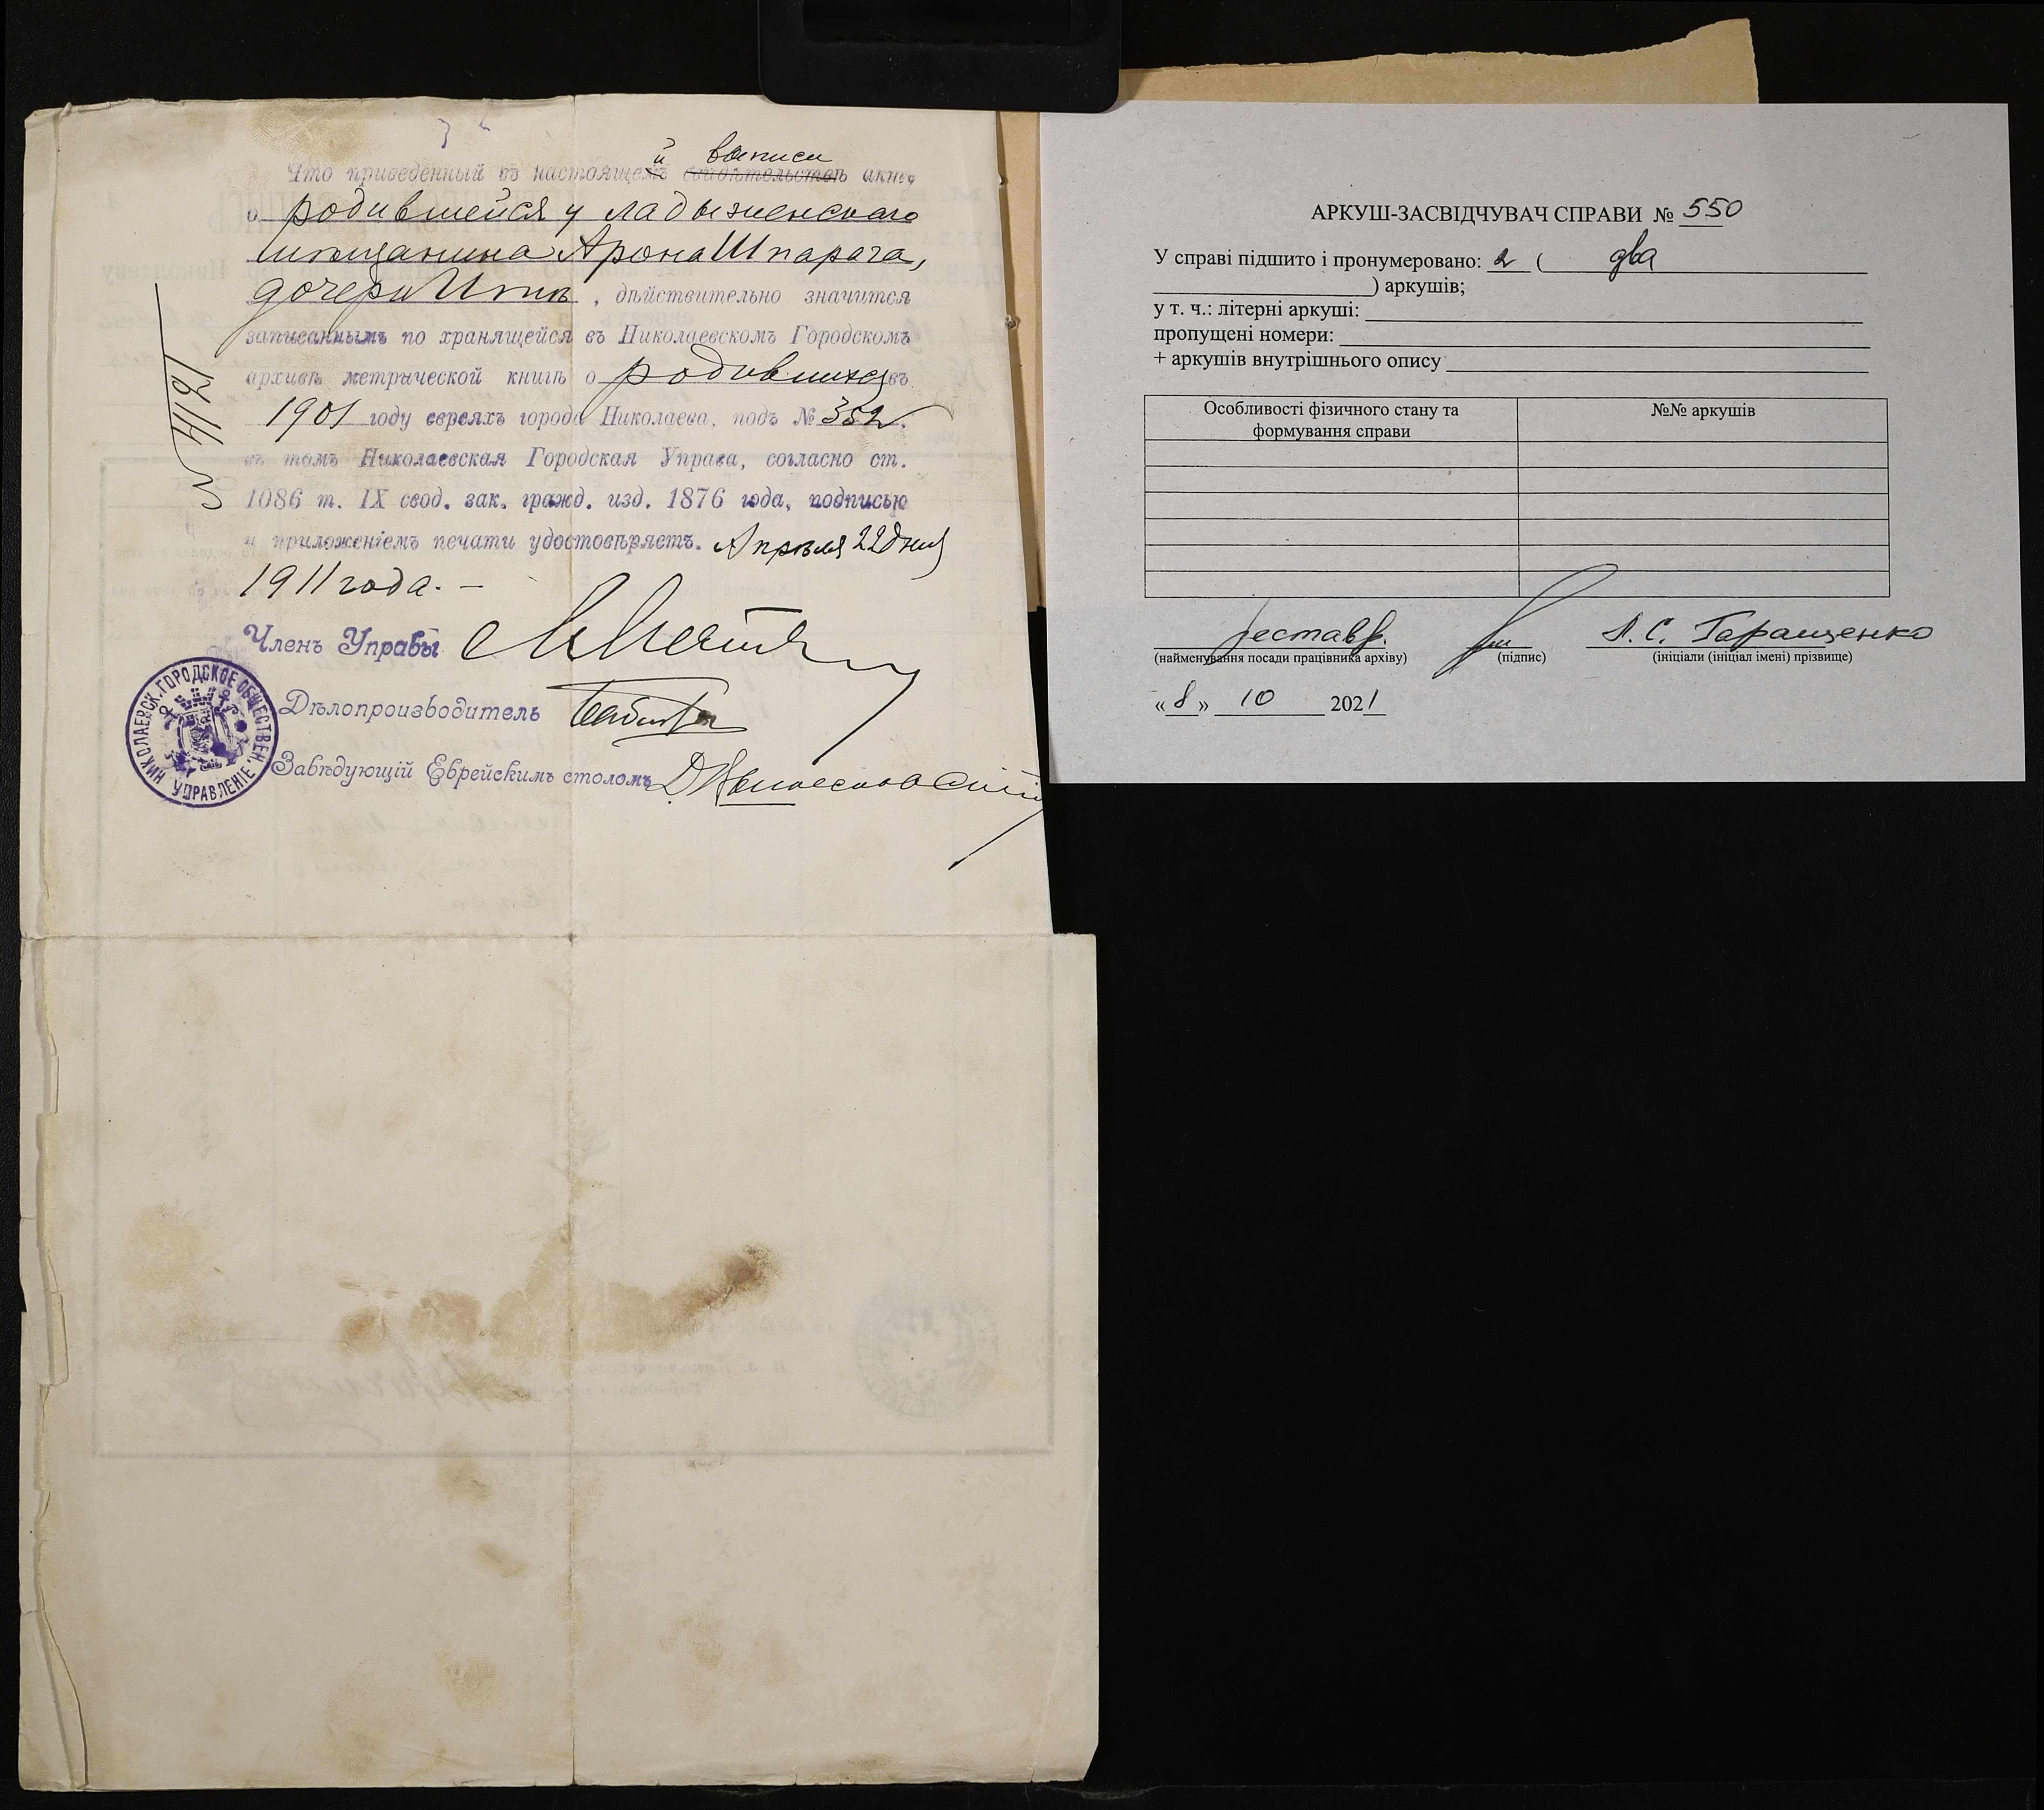 Что приведенный въ настоящей выписи свидѣтельствѣ актъ
о родившейся у ладыженскаго
мѣщанина Арона Шпарага,
дочери Итѣ, дѣйствительно значится
записаннымъ по хранящейся въ Николаевскомъ Городскомъ
архивѣ метрической книгѣ о родившихся въ
1901 году евреяхъ города Николаева, подъ № 352.
въ томъ Николаевская Городская Управа, согласно ст.
1086 т. IX свод. зак. гражд. изд. 1876 года, подписью
и приложеніемъ печати удостовѣряетъ. Апрѣля 22 дня
1911 года. –
Членъ Управы
Дѣлопроизводитель
Завѣдующій Еврейскимъ столомъ
НИКОЛАЕВСК. ГОРОДСКОЕ ОБЩЕСТВЕН. УПРАВЛЕНІЕ
АРКУШ-ЗАСВІДЧУВАЧ СПРАВИ № 550
У справі підшито і пронумеровано: 2 ( два
) аркушів;
у т. ч.: літерні аркуші:
пропущені номери:
+ аркушів внутрішнього опису
Особливості фізичного стану та
формування справи
№№ аркушів
реставр. Л. С. Гаращенко
(найменування посади працівника архіву) (підпис) (ініціали (ініціал імені) прізвище)
« 8 » 10 2021